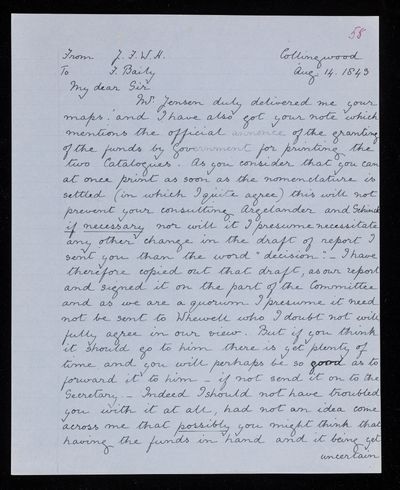 58
From J. F. W. H. Collingwood
To F. Baily Aug. 14. 1843
My dear Sir
Mr. Jensen duly delivered me your
maps. and I have also got your note which
mentions the official annonce of the granting
of the funds by Government for printing the
two Catalogues. As you consider that you can
at once print as soon as the nomenclature is
settled (in which I quite agree) this will not
prevent your consulting Argelander and
if necessary nor will it I presume necessitate
any other change in the draft of report I
sent you than the word "decision". - I have
therefore copied out that draft, as our report
and signed it on the part of the Committee
and as we are a quorum I presume it need
not be sent to Whewell who I doubt not will
fully agree in our view. But if you think
it should go to him there is yet plenty of
time and you will perhaps be so good as to
forward it to him - if not send it on to the
Secretary. - Indeed I should not have troubled
you with it at all, had not an idea come
across me that possibly you might think that
having the funds in hand and it being yet
uncertain